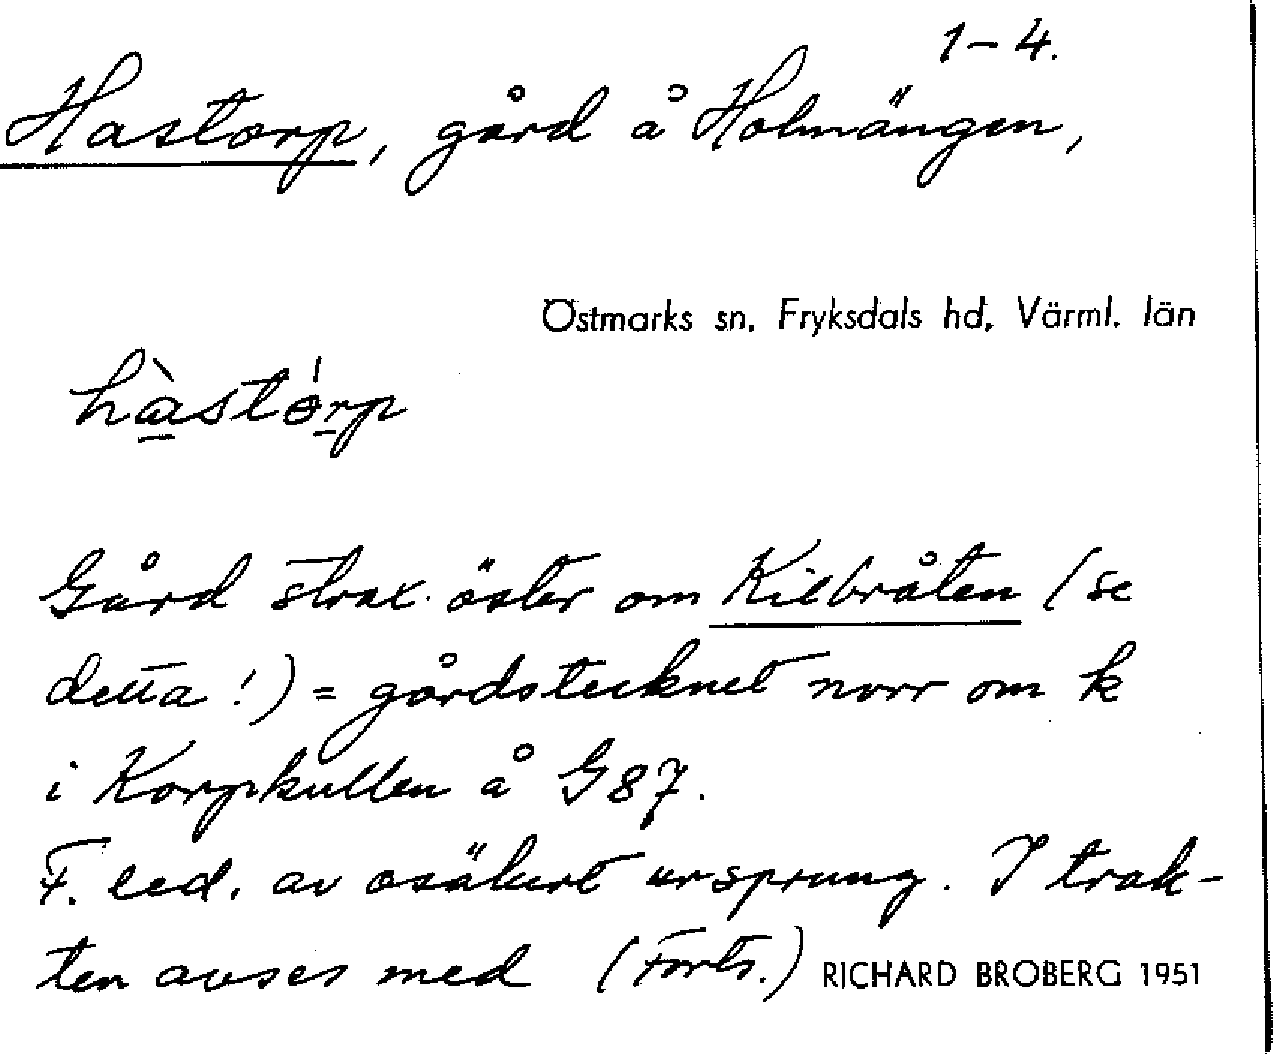 1-4.
Hastorp, gård å Holmängen,
Östmarks sn. Fryksdals hd, Värml. län
hàstórp
Gård strax öster om Kilbråten (se
detta!) = gårdstecknet norr om k
i Korpkullen å G87.
F. led. av osäkert ursprung. I trak-
ten avses med (Forts.) RICHARD BROBERG 1951